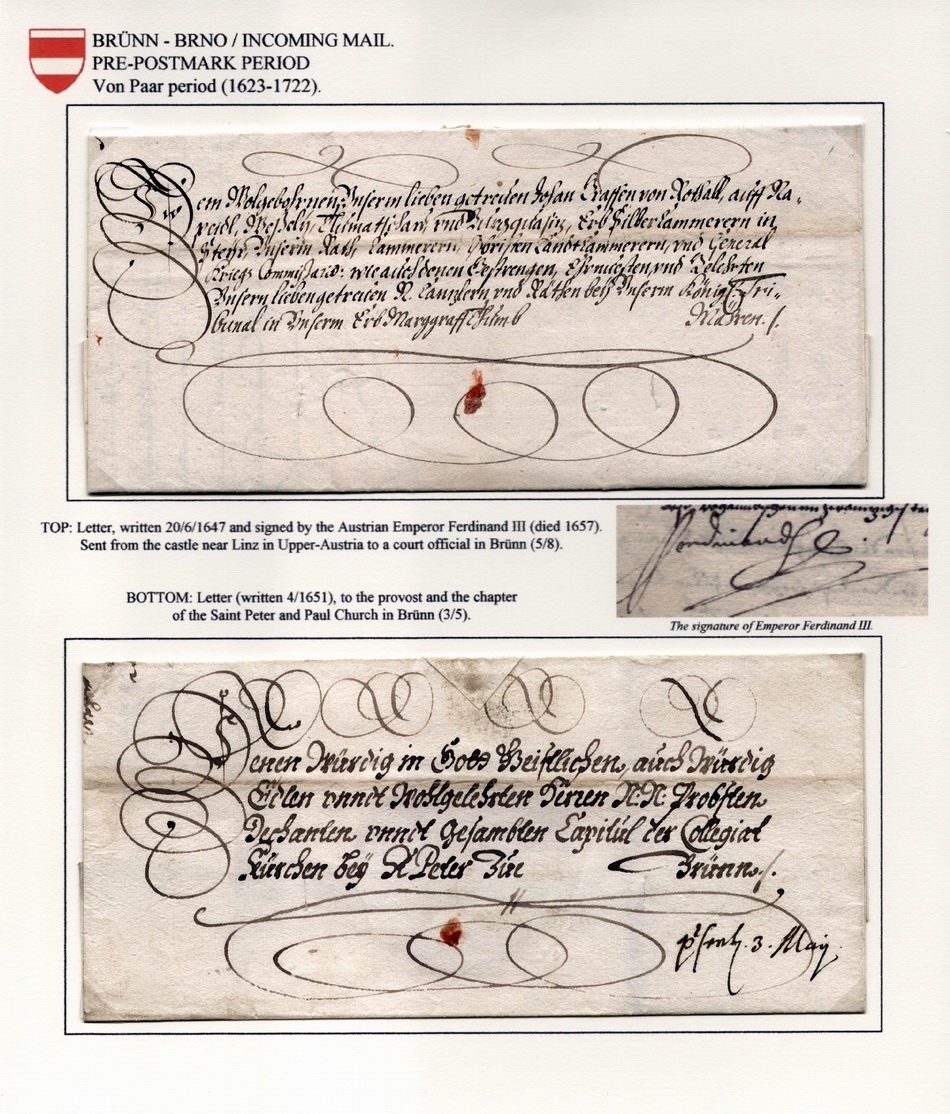 BRÜNN - BRNO / INCOMING MAIL.
PRE-POSTMARK PERIOD
Von Paar period (1623-1722).
em Wolgebohrnen, Unserm lieben getreuen Johan Graffen von Rothall, auff Na-
Unserm Rath, Cammerern, Obristen Landtcammerern, und General
Kriegs Commissario: wie auch denen Gestrengen, Ehrnvesten, und Gelehrten
Unsern lieben getreuen N. Canzlern, und Räthen beij Unserm Königl: Tri-
bunal in Unserm Erb Marggraffthumb Mähren ./.
TOP: Letter, written 20/6/1647 and signed by the Austrian Emperor Ferdinand III (died 1657).
Sent from the castle near Linz in Upper-Austria to a court official in Brünn (5/8).
Ferdinand
The signature of Emperor Ferdinand III.
BOTTOM: Letter (written 4/1651), to the provost and the chapter
of the Saint Peter and Paul Church in Brünn (3/5).
Denen Würdig in Gott Geistlichen, auch Würdig
Edlen vnndt Wohlgelehrten Herren N: N: Probsten
Dechanten vnndt gesambten Capitul der Collegiat
Kürchen beÿ St Peter Zue Brünn ./.
3. Maÿ